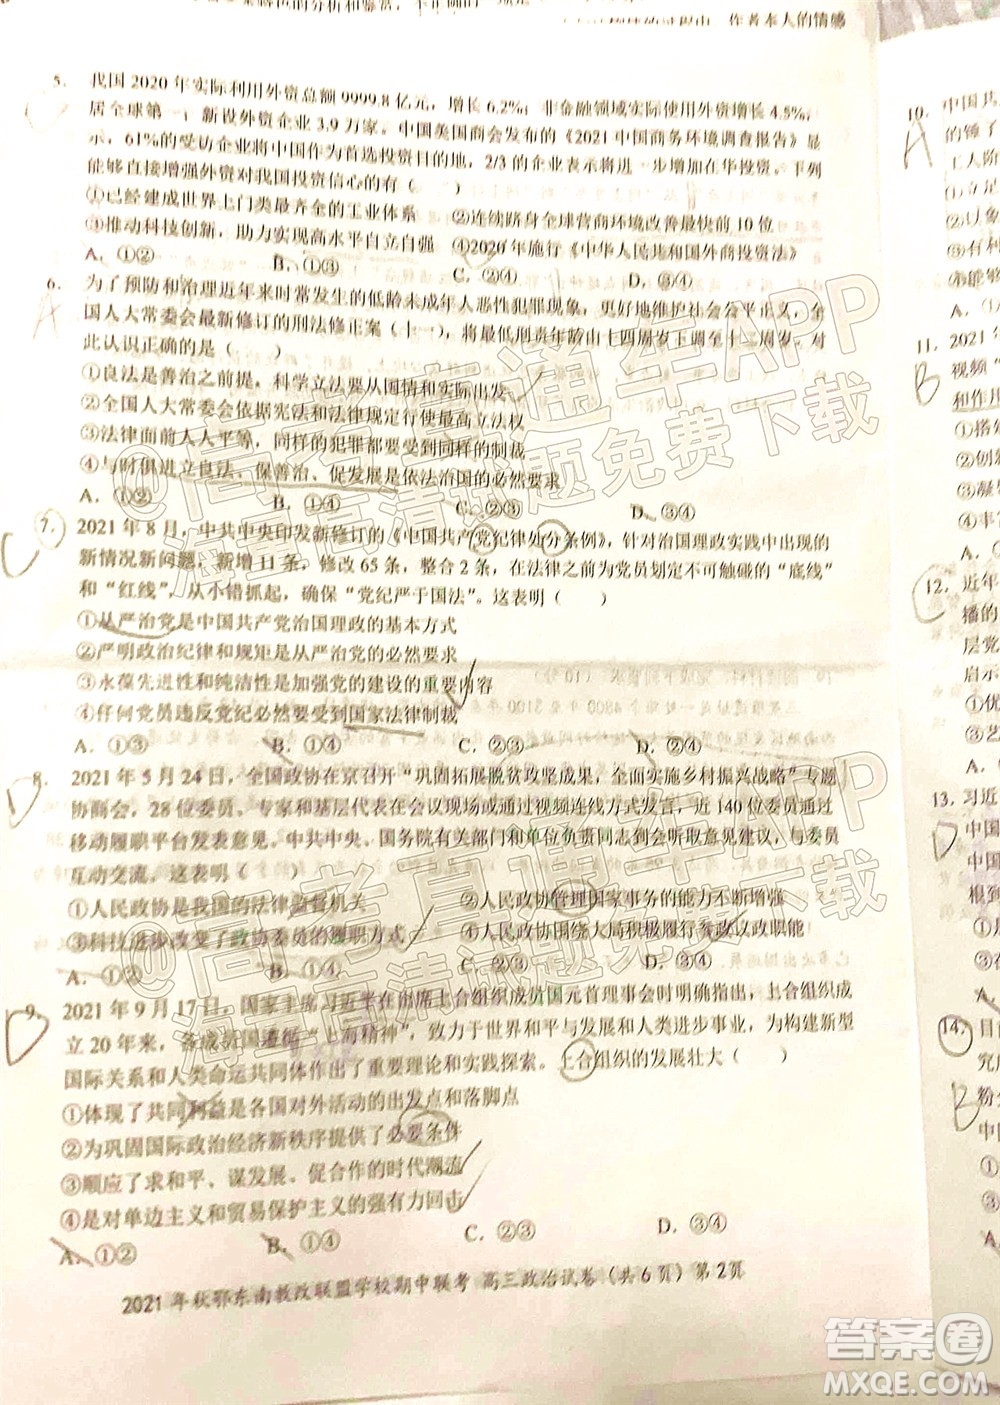 作者本人的情感
5. 我国2020年实际利用外资总额9999.8亿元，增长6.2%；非金融领域实际使用外资增长4.5%，
居全球第一；新设外资企业3.9万家。中国美国商会发布的《2021中国商务环境调查报告》显
示，61%的受访企业将中国作为首选投资目的地，2/3的企业表示将进一步增加在华投资。下列
能直接增强外资对我国投资信心的有（　　）
①已经建成世界上门类最齐全的工业体系　②连续跻身全球营商环境改善最快前10位
③推动科技创新，助力实现高水平自立自强　④2020年施行《中华人民共和国外商投资法》
A．①②　B．①③　C．②④　D．③④
6. 为了预防和治理近年来时常发生的低龄未成年人恶性犯罪现象，更好地维护社会公平正义，全
A
国人大常委会最新修订的刑法修正案（十一），最低刑责年龄由十四周岁下调至十二周岁。对
此认识正确的是（　　）
①良法是善治之前提，科学立法要从国情和实际出发
②全国人大常委会依据宪法和法律规定行使最高立法权
③法律面前人人平等，同样的犯罪都要受到同样的制裁
④与时俱进立良法、保善治、促发展是依法治国的必然要求
A．①②　B．①④　C．②③　D．③④
C 7. 2021年8月，中共中央印发新修订的《中国共产党纪律处分条例》，针对治国理政实践中出现的
新情况新问题，新增11条，修改65条，整合2条，在法律之前为党员划定不可触碰的“底线”
和“红线”，从小错抓起，确保“党纪严于国法”。这表明（　　）
①从严治党是中国共产党治国理政的基本方式
②严明政治纪律和规矩是从严治党的必然要求
③永葆先进性和纯洁性是加强党的建设的重要内容
④任何党员违反党纪必然要受到国家法律制裁
A．①③　B．①④　C．②③　D．②④
D 8. 2021年5月24日，全国政协在京召开“巩固拓展脱贫攻坚成果，全面实施乡村振兴战略”专题
协商会，28位委员、专家和基层代表在会议现场或通过视频连线方式发言，近140位委员通过
移动履职平台发表意见。中共中央、国务院有关部门和单位负责同志到会听取意见建议，与委员
互动交流。这表明（　　）
①人民政协是我国的法律监督机关　②人民政协管理国家事务的能力不断增强
③科技进步改变了政协委员的履职方式　④人民政协围绕大局积极履行参政议政职能
A．①②　B．①③　C．②④　D．③④
D 9. 2021年9月17日，国家主席习近平在出席上合组织成员国元首理事会时明确指出，上合组织成
立20年来，各成员国遵循“上海精神”，致力于世界和平与发展和人类进步事业，为构建新型
国际关系和人类命运共同体作出了重要理论和实践探索。上合组织的发展壮大（　　）
①体现了共同利益是各国对外活动的出发点和落脚点
②为巩固国际政治经济新秩序提供了必要条件
③顺应了求和平、谋发展、促合作的时代潮流
④是对单边主义和贸易保护主义的强有力回击
A．①②　B．①④　C．②③　D．③④
2021年秋鄂东南教改联盟学校期中联考　高三政治试卷（共6页）第2页
10. 中国共
A
的锤子
工人阶
①立足
②以象
③有利
④能够
A．①
11. 2021年
B
视频“
和作用
①搭
②创
③凝
④丰
A．①
C 12. 近年
播的
层党
启示
①优
③艺
A．①
13. 习近
D
中国
中国
根到
①
③在
A．
14. 目
究
B
粉
中国
①
③
A．
@高考直通车APP
海量高清试题免费下载
@高考直通车APP
海量高清试题免费下载
答案圈
MXQE.COM